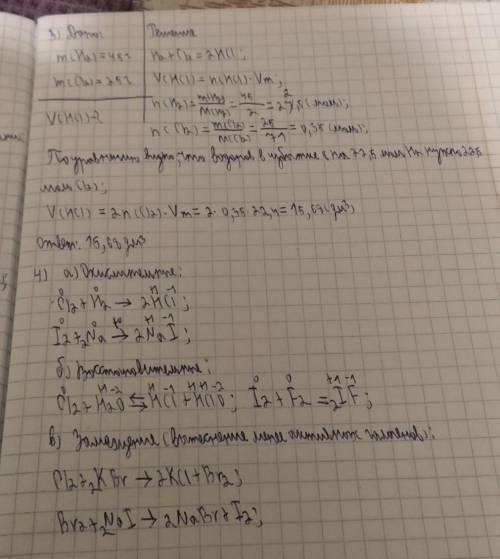 3) Дано: Решение
m(H₂)=45г H₂+Cl₂=2HCl;
m(Cl₂)=25г V(HCl)=n(HCl)·Vm;
V(HCl)-? n(H₂)=m(H₂)/M(H₂)=45/2=22,5(моль);
n(Cl₂)=m(Cl₂)/M(Cl₂)=25/71=0,35(моль);
По уравнению видно, что водород в избытке (на 22,5 моль H₂ нужно 22,5
моль Cl₂);
V(HCl)=2n(Cl₂)·Vm=2·0,35·22,4=15,68(дм³)
Ответ: 15,68 дм³
4) а) Окислительные:
Cl₂⁰+H₂⁰→2H⁺¹Cl⁻¹;
I₂⁰+2Na⁰→2Na⁺¹I⁻¹;
б) Восстановительные:
Cl₂⁰+H₂⁺¹O⁻²⇆H⁺¹Cl⁻¹+H⁺¹Cl⁺¹O⁻²; I₂⁰+F₂⁰=2I⁺¹F⁻¹;
в) Замещение (вытеснение менее активных галогенов):
Cl₂+2KBr→2KCl+Br₂;
Br₂+2NaI→2NaBr+I₂;